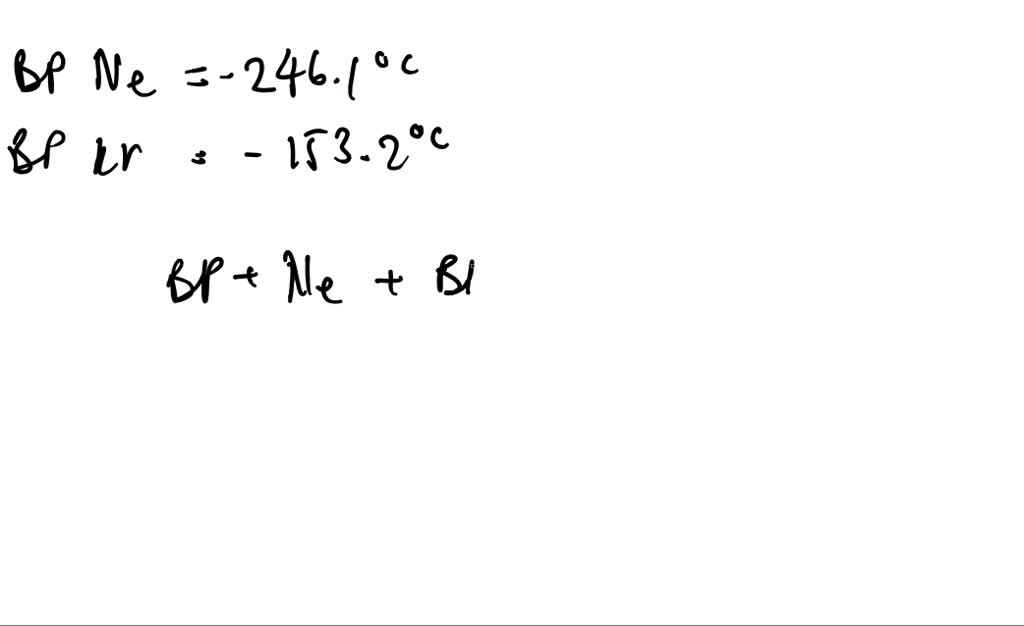 BP Ne = -246.1°C
BP Kr = -153.2°C
BP + Ne + BP